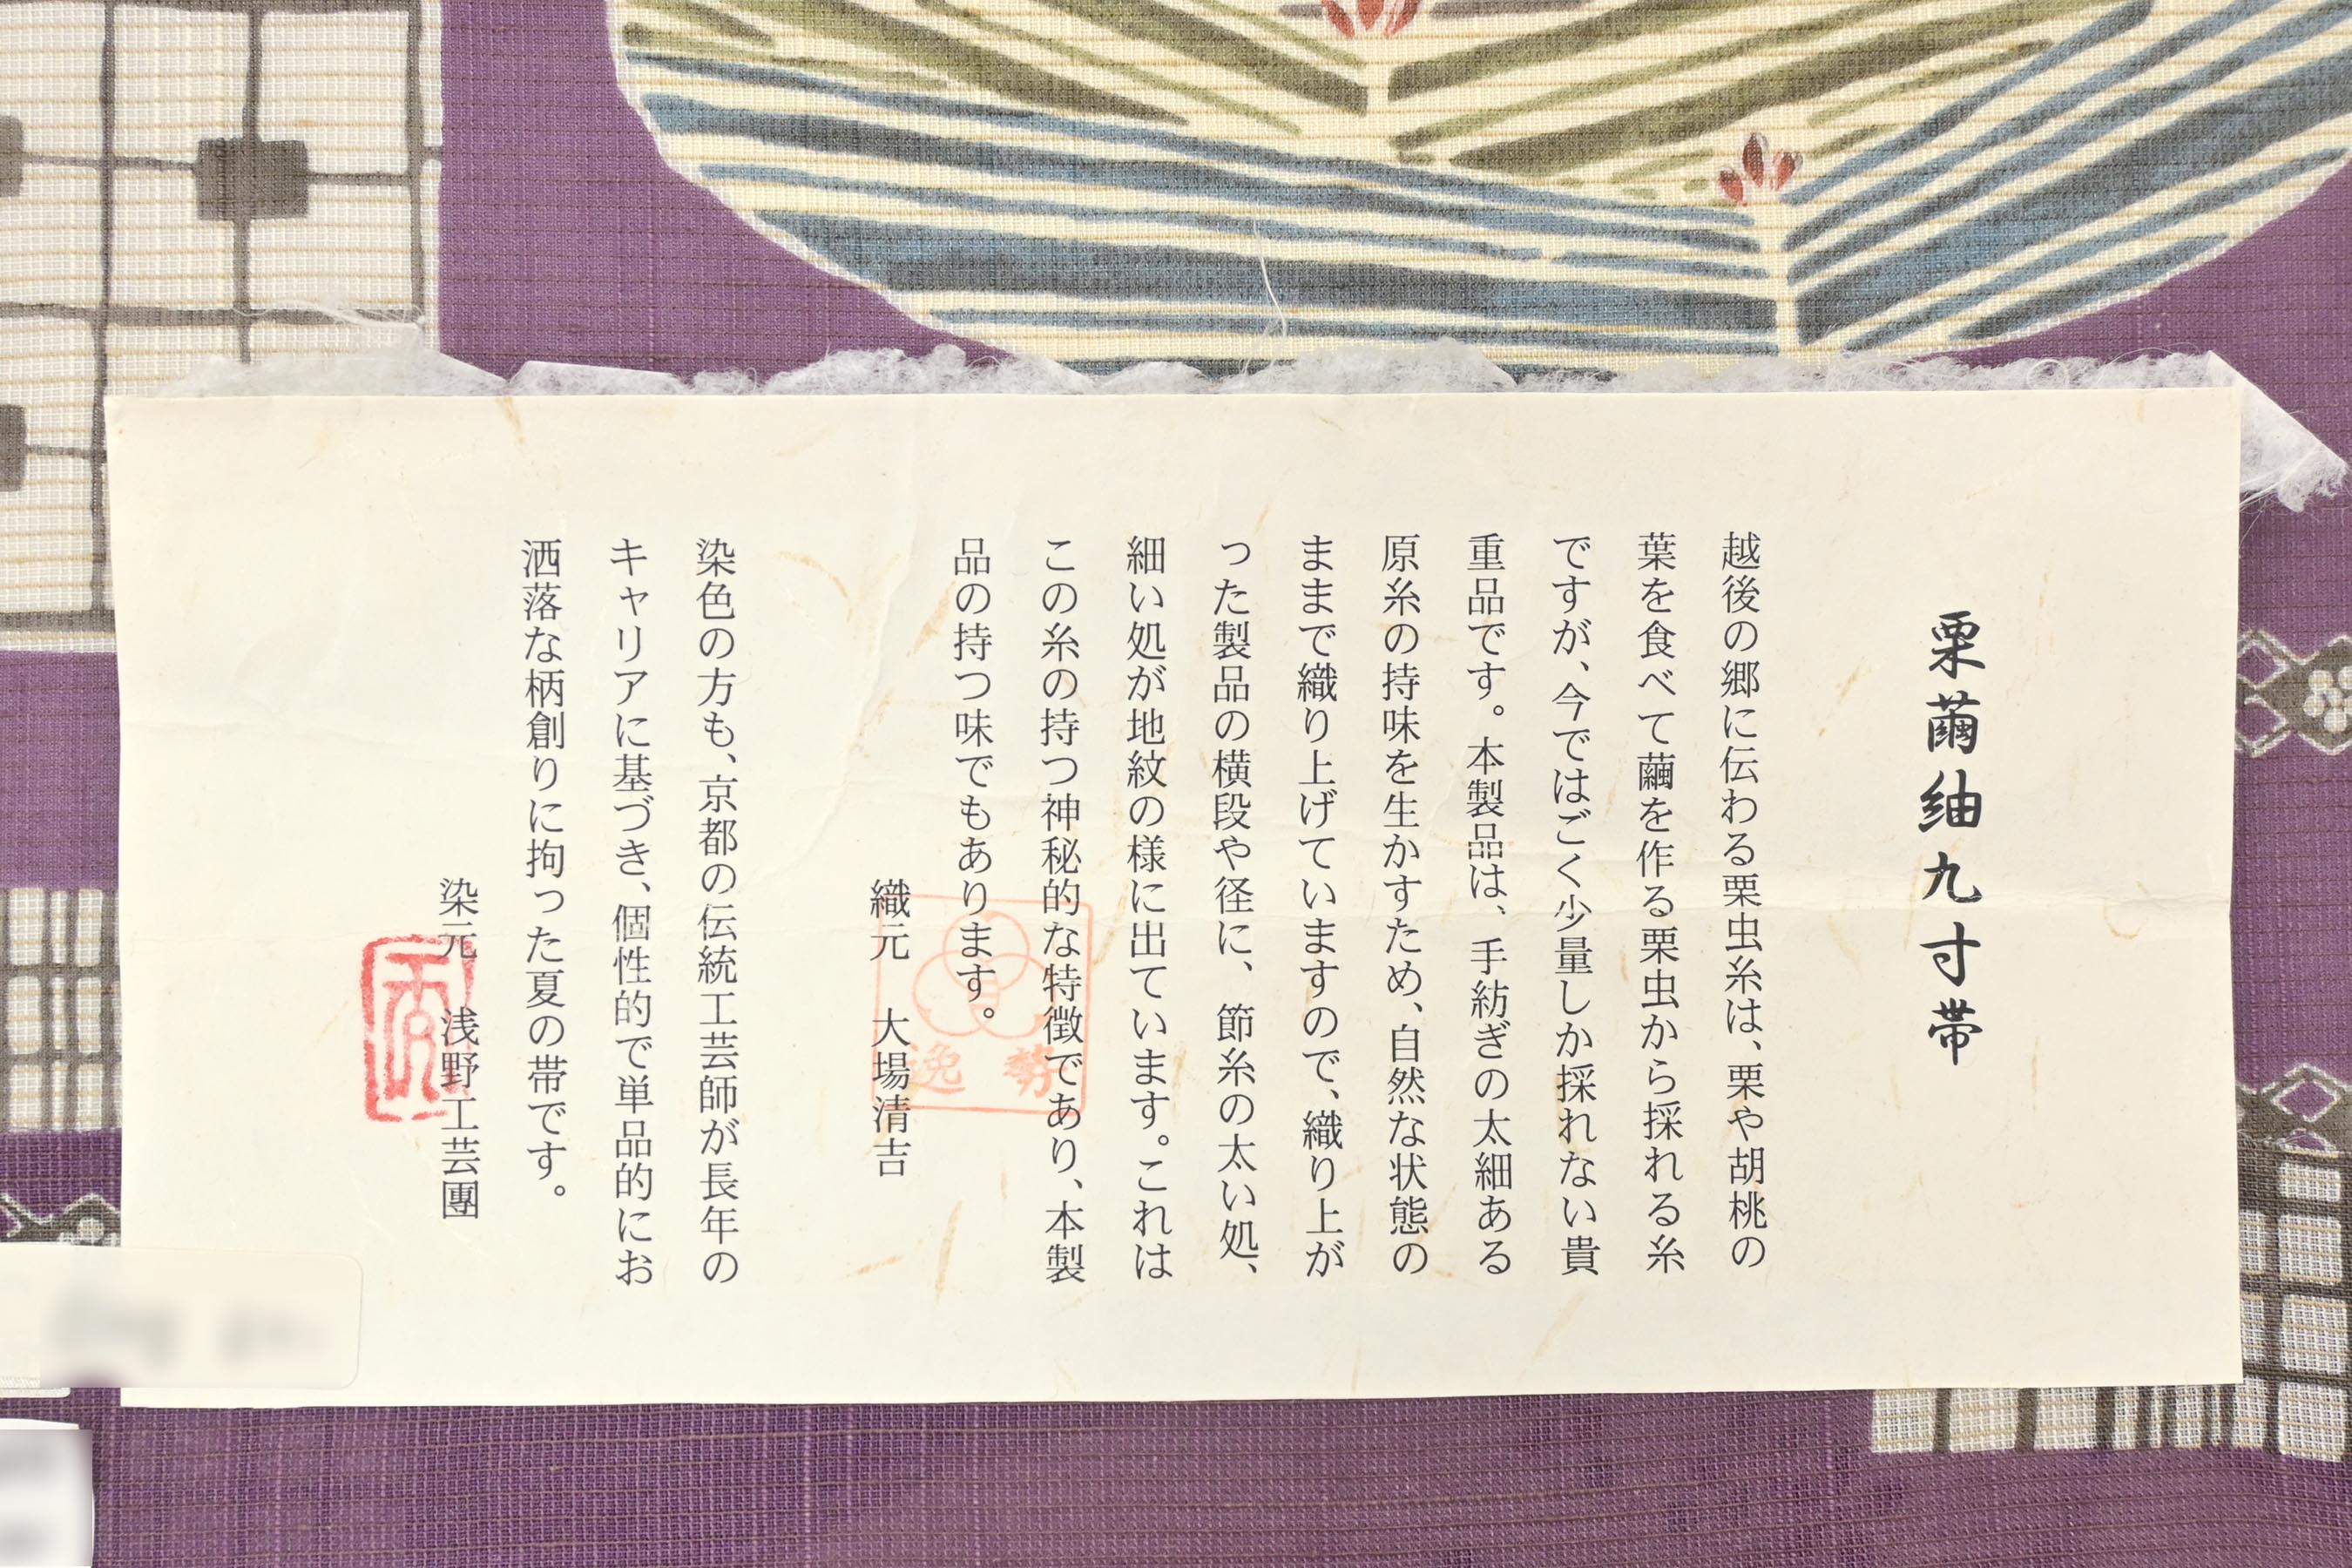 栗繭紬九寸帯
越後の郷に伝わる栗虫糸は、栗や胡桃の
葉を食べて繭を作る栗虫から採れる糸
ですが、今ではごく少量しか採れない貴
重品です。本製品は、手紡ぎの太細ある
原糸の持味を生かすため、自然な状態の
ままで織り上げていますので、織り上が
った製品の横段や径に、節糸の太い処、
細い処が地紋の様に出ています。これは
この糸の持つ神秘的な特徴であり、本製
品の持つ味でもあります。
織元 大場清吉
逸勢
染色の方も、京都の伝統工芸師が長年の
キャリアに基づき、個性的で単品的にお
洒落な柄創りに拘った夏の帯です。
染元 浅野工芸團